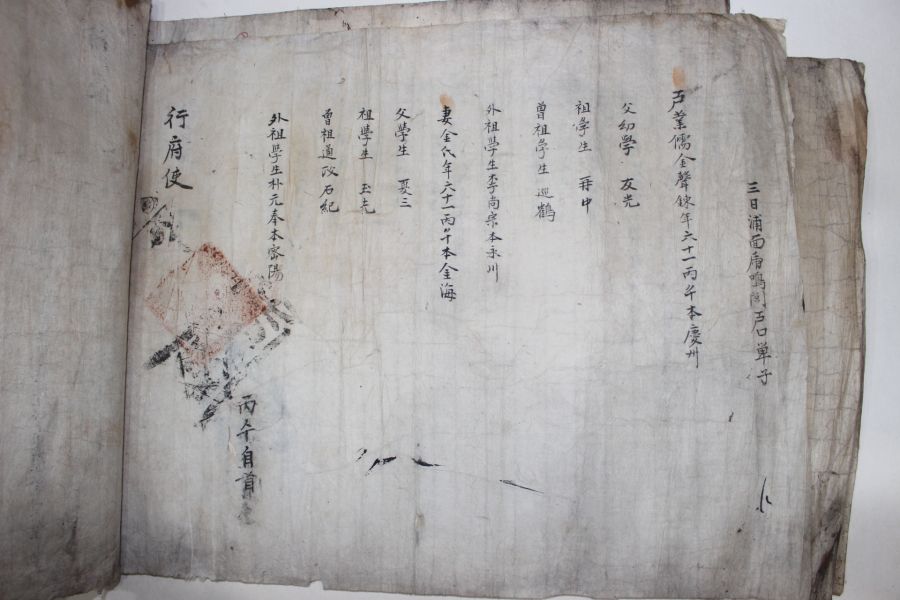 三日浦面唇鳴洞戶口單子
戶業儒金聲鍊年六十一丙午本慶州
父幼學 友光
祖學生 再中
曾祖學生 巡鶴
外祖學生李尚宗本永川
妻金氏年六十一丙午本金海
父學生 夏三
祖學生 玉先
曾祖通政石紀
外祖學生朴元奉本密陽
行府使
丙午自首